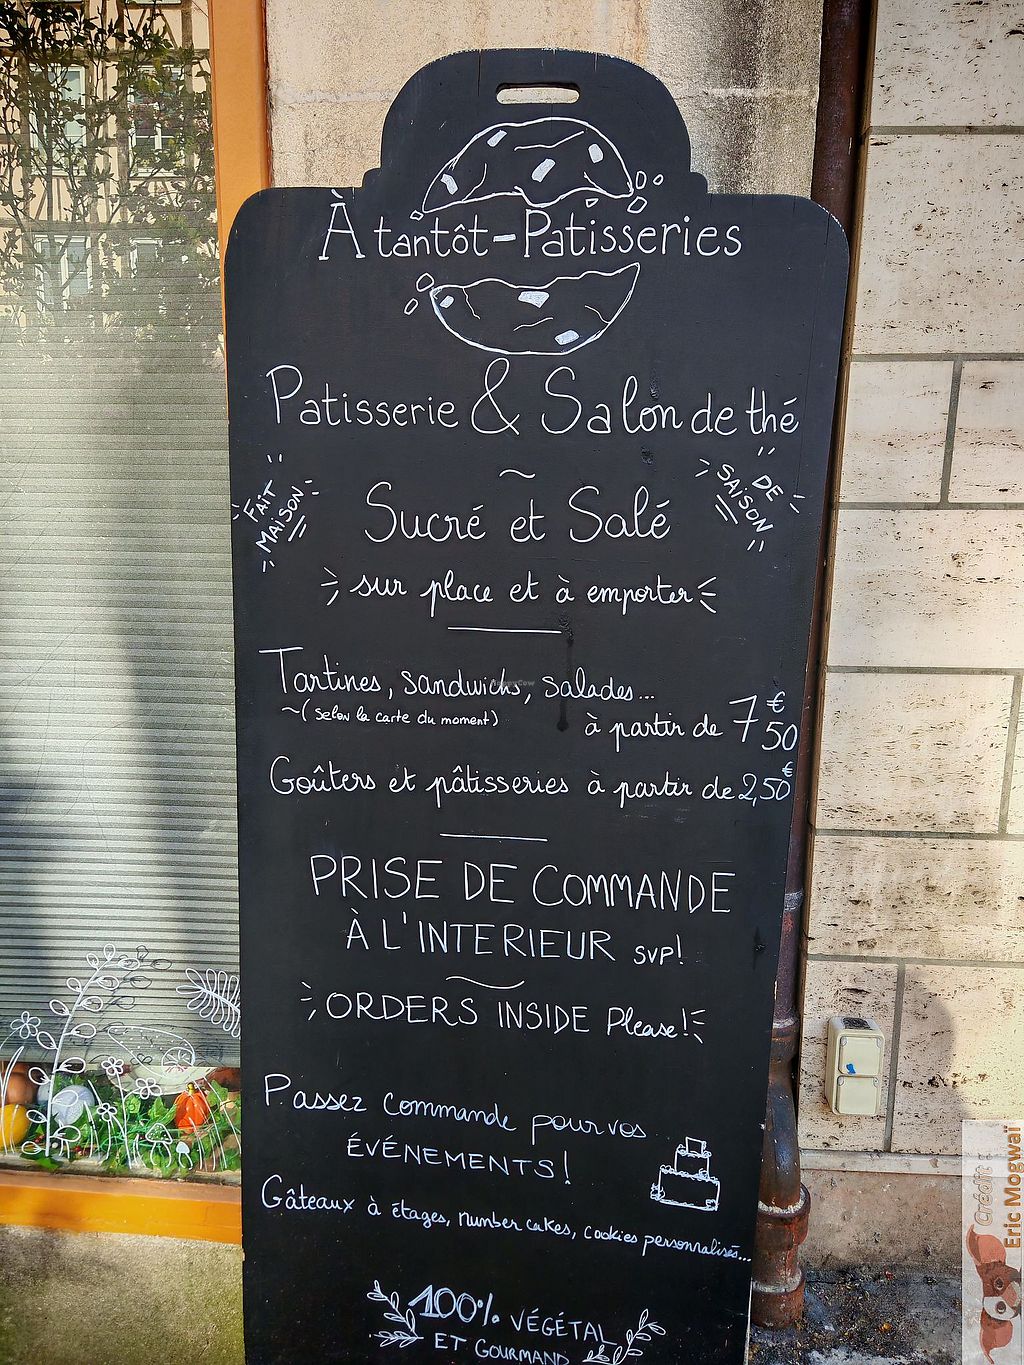 À tantôt - Patisseries
Patisserie & Salon de thé
~
FAIT
MAISON
DE
SAISON
Sucré et Salé
sur place et à emporter
Tartines, sandwichs, salades...
~(selon la carte du moment)
à partir de 7€50
Goûters et pâtisseries à partir de 2,50€
PRISE DE COMMANDE
À L'INTERIEUR SVP!
ORDERS INSIDE Please!
Passez commande pour vos
ÉVÉNEMENTS!
Gâteaux à étages, number cakes, cookies personnalisés...
100% VÉGÉTAL
ET GOURMAND
HappyCow
Crédit :
Eric Mogwaï